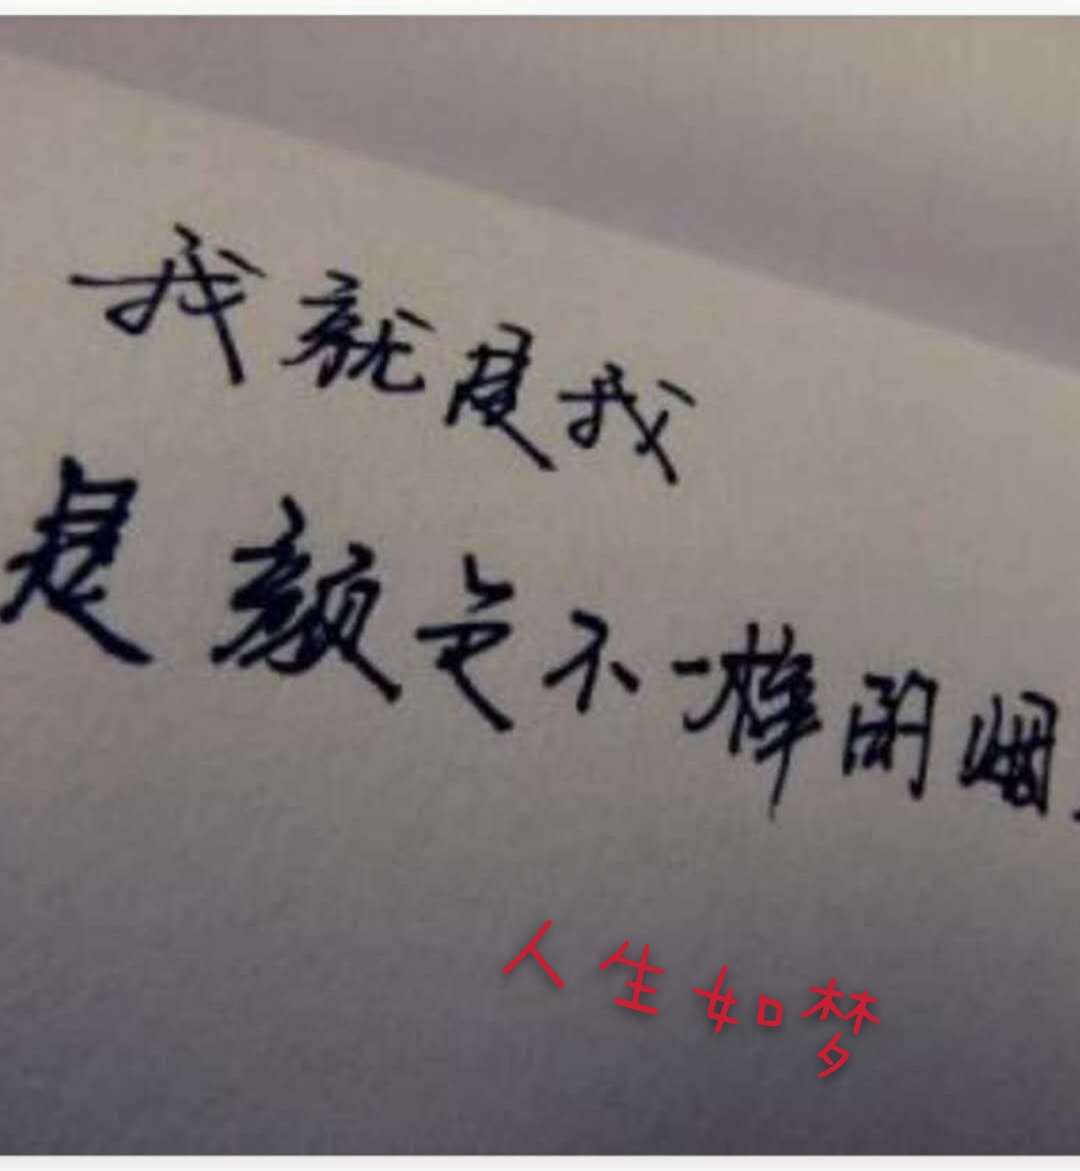 我就是我
是颜色不一样的烟
人生如梦